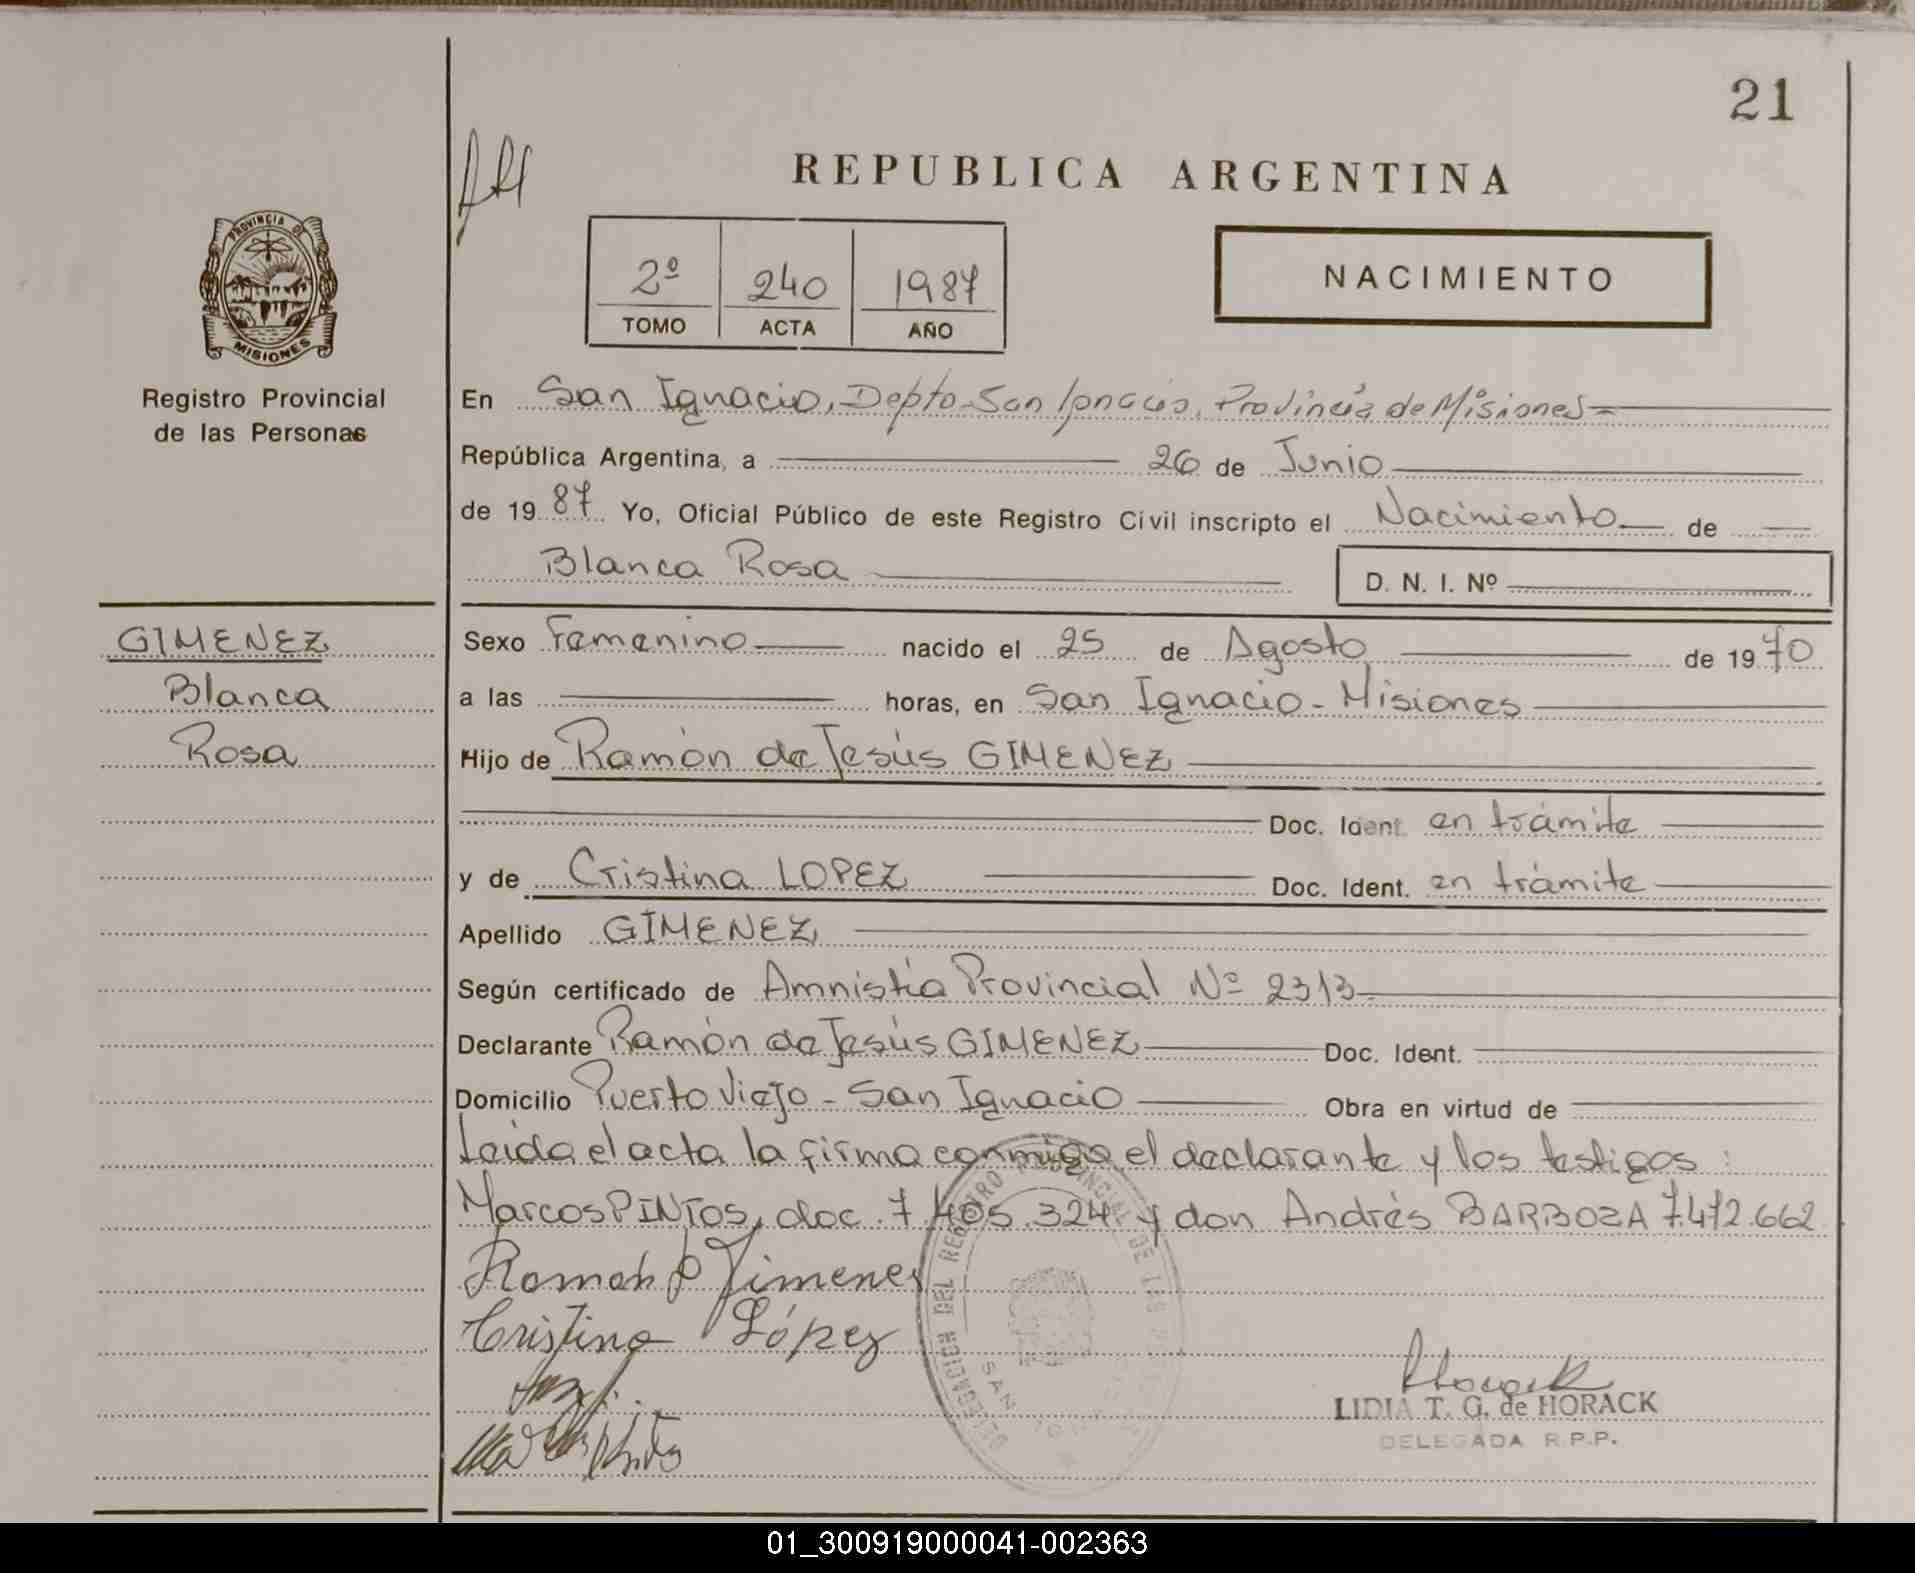 21
REPUBLICA ARGENTINA
PROVINCIA DE
MISIONES
Registro Provincial
de las Personas
2º 240 1987
TOMO ACTA AÑO
NACIMIENTO
En San Ignacio, Depto. San Ignacio, Provincia de Misiones
República Argentina, a 26 de Junio
de 1987 Yo, Oficial Público de este Registro Civil inscripto el Nacimiento de
Blanca Rosa D. N. I. Nº
GIMENEZ
Blanca
Rosa
Sexo Femenino nacido el 25 de Agosto de 1970
a las horas, en San Ignacio - Misiones
Hijo de Ramón de Jesús GIMENEZ
Doc. Ident. en trámite
y de Cristina LOPEZ Doc. Ident. en trámite
Apellido GIMENEZ
Según certificado de Amnistía Provincial Nº 2313
Declarante Ramón de Jesús GIMENEZ Doc. Ident.
Domicilio Puerto Viejo - San Ignacio Obra en virtud de
Leida el acta la firma conmigo el declarante y los testigos:
Marcos PINTOS, doc. 7.405.324 y don Andrés BARBOZA 7.472.662
Ramon Jimenez
Cristina López
DELEGACION DEL REGISTRO PROVINCIAL DE LAS
SAN
Horack
LIDIA T. G. de HORACK
DELEGADA R.P.P.
01_300919000041-002363